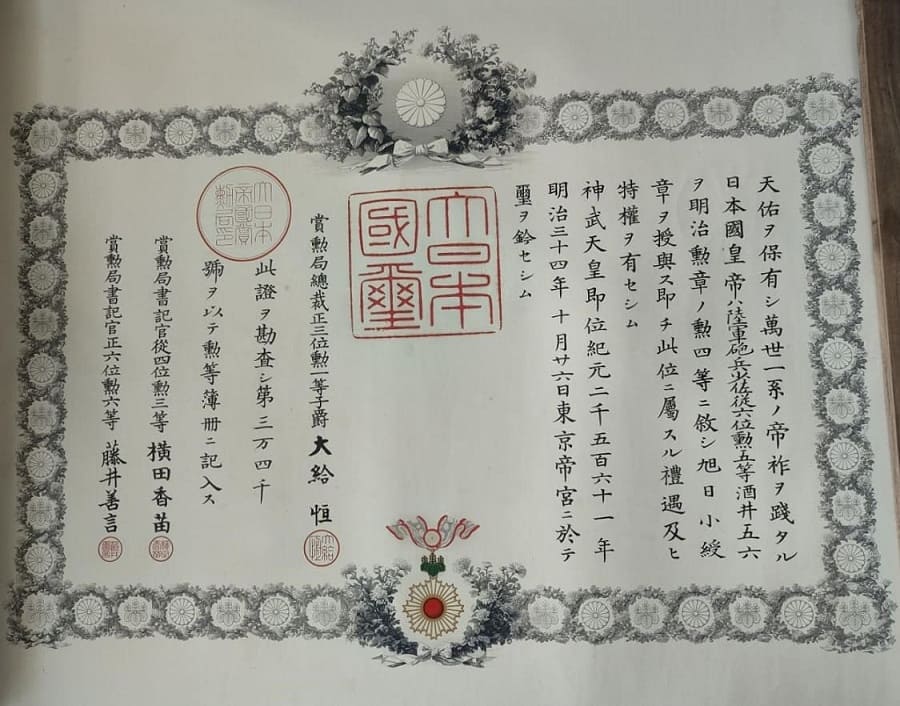 天佑ヲ保有シ萬世一系ノ帝祚ヲ踐タル
日本國皇帝ハ陸軍砲兵少佐從六位勲五等酒井五六
ヲ明治勲章ノ勲四等ニ敘シ旭日小綬
章ヲ授與ス即チ此位ニ屬スル禮遇及ヒ
特權ヲ有セシム
神武天皇即位紀元二千五百六十一年
明治三十四年十月廿六日東京帝宮ニ於テ
璽ヲ鈐セシム
大日本
國璽
賞勲局總裁正三位勲一等子爵大給恒
大日本
帝國賞
勲局印
此證ヲ勘査シ第三万四千
號ヲ以テ勲等簿册ニ記入ス
賞勲局書記官從四位勲三等橫田香苗
賞勲局書記官正六位勲六等藤井善言